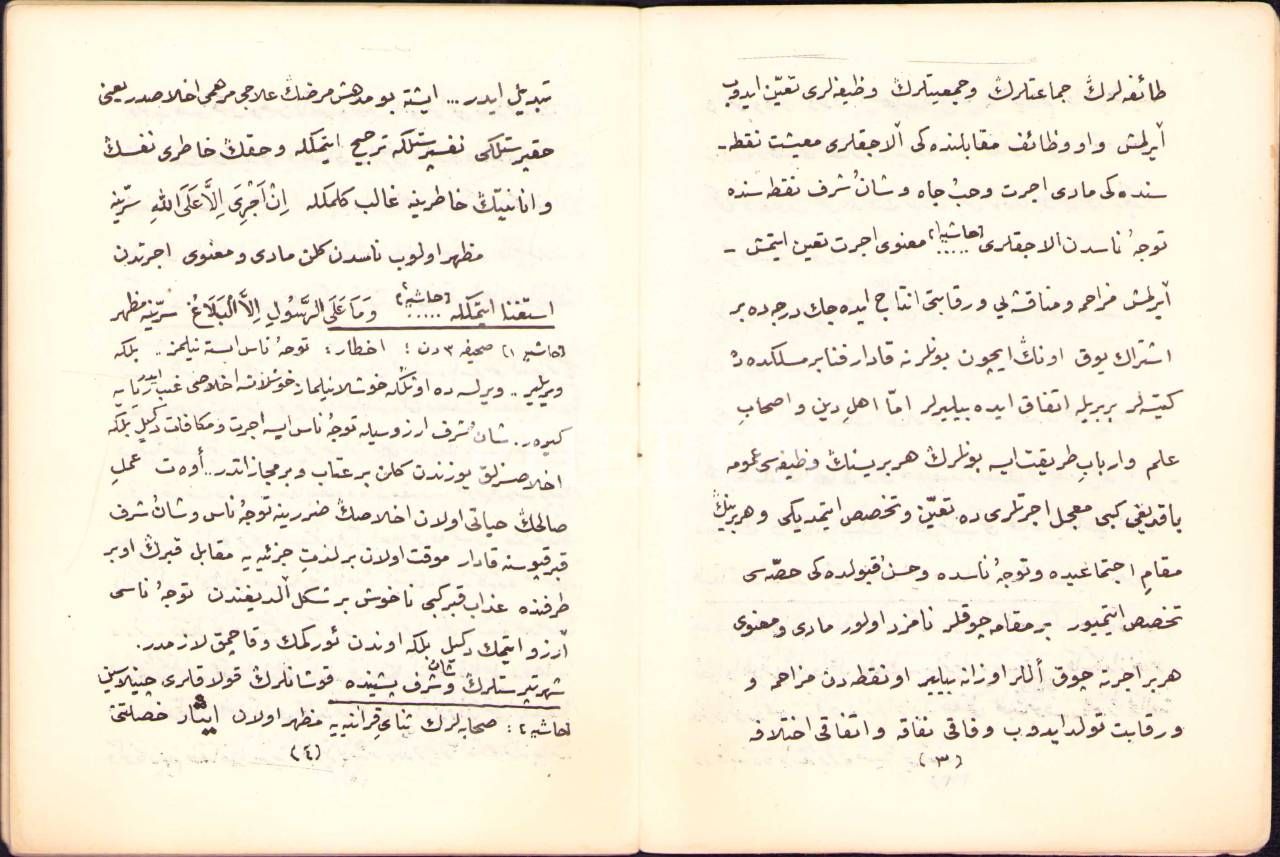 طائفه‌لرڭ جماعتلرڭ وجمعيتلرڭ وظيفه‌لرى تعيّن ايدوب
آيرلمش و او وظائف مقابلنده‌كى آلاجقلرى معيشت نقطه‌-
سنده‌كى مادى اجرت وحبّ جاه و شان‌ُ شرف نقطه‌سنده
توجهُ ناسدن آلاجقلرى [حاشيه ١] ..... معنوى اجرت تعين ايتمش -
آيرلمش مزاحمه ومناقشه‌يى ورقابتى انتاج ايده‌جك درجه‌ده بر
اشتراك يوق اونڭ ايچون بونلر نه قادار فنا بر مسلكده د
كيتسه‌لر بربريله اتفاق ايده بيليرلر امّا اهلِ دين و اصحابِ
علم وأربابِ طريقت ايسه بونلرڭ هر برينڭ وظيفه‌سى عمومه
باقديغى كبى معجل اجرتلرى ده تعيّن وتخصص ايتمديكى وهر برينڭ
مقامِ اجتماعيده وتوجهُ ناسده وحسن قبولده‌كى حصّه‌سى
تخصص ايتميور بر مقامه چوقلر نامزد اولور مادى ومعنوى
هر بر اجرته چوق أللر اوزانه بيلير او نقطه‌دن مزاحمه و
ورقابت تولد ايدوب وفاقى نفاقه واتفاقى اختلافه
(٣)
تبديل ايدر ... ايشته بو مدهش مرضڭ علاجى مرهمى اخلاصدر يعنى
حقپرستلكى نفسپرستلكه ترجيح ايتمكله وحقڭ خاطرى نفسڭ
وانانيتڭ خاطرينه غالب كلمكله اِنْ اَجْرِىَ اِلَّا عَلَى اللّٰهِ سرّينه
مظهر اولوب ناسدن كلن مادى ومعنوى اجرتدن
استغنا ايتمكله [حاشيه ٢] ..... وَمَا عَلَى الرَّسُولِ اِلَّا الْبَلَاغُ سرّينه مظهر
[حاشيه ١] صحيفه ٣ دن : اخطار : توجهُ ناس ايسته نيلمز .. بلكه
ويريلير .. ويرلسه ده اونڭله خوشلانيلماز خوشلانسه اخلاصى غيب ايدر ريايه
كيره‌ر . شان‌ُ شرف ارزوسيله توجهُ ناس ايسه اجرت ومكافات دكيل بلكه
اخلاصسزلق يوزندن كلن بر عتاب وبر مجازاتدر .. أوه‌ت عملِ
صالحڭ حياتى اولان اخلاصڭ ضررينه توجهُ ناس وشان‌ُ شرف
قبر قپوسنه قادار موقت اولان بر لذتِ جزئيه‌يه مقابل قبرڭ اوبر
طرفنده عذاب قبر كبى ناخوش بر شكل آلديغندن توجهُ ناسى
آرزو ايتمك دكيل بلكه اوندن ئوركمك وقاچمق لازمدر.
شهرتپرستلرڭ وشان شرف پشنده قوشانلرڭ قولاقلرى چينلاسين
[حاشيه ٢ : صحابه‌لرك ثناى قرآنيه‌يه مظهر اولان ايثار خصلتنى
(٤)